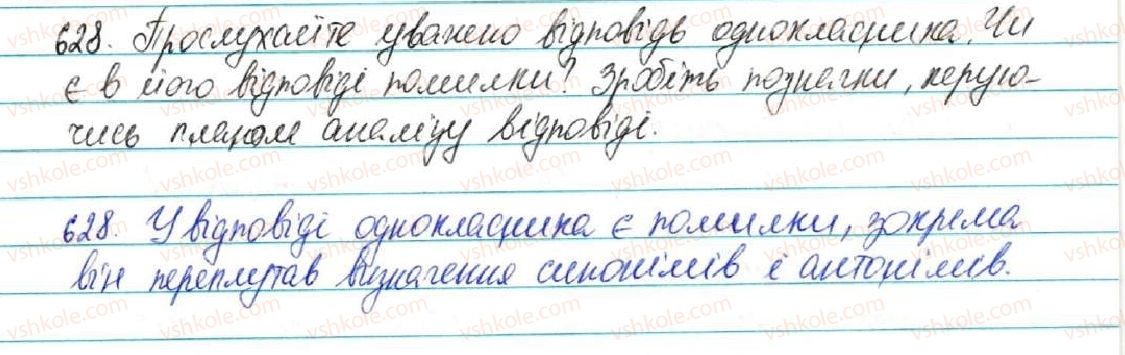 628. Прослухайте уважно відповідь однокласника. Чи
є в його відповіді помилки? Зробіть позначки, керую-
чись планом аналізу відповіді.
628. У відповіді однокласника є помилки, зокрема
він переплутав визначення синонімів і антонімів.